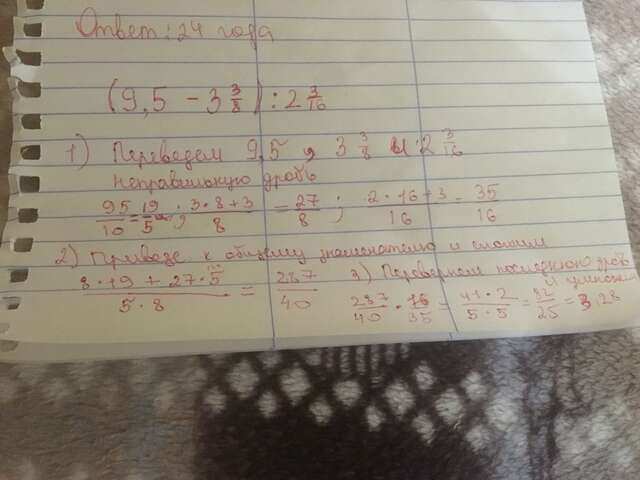 Ответ: 24 года
(9,5 - 3 3/8) : 2 3/16
1) Переведем 9,5, 3 3/8 и 2 3/16
неправильную дробь
95/10 = 19/5; 3·8+3/8 = 27/8; 2·16+3/16 = 35/16
2) Приведе к общему знаменателю и сложим
8·19 + 27·5/5·8 = 287/40
3) Перевернем последнюю дробь и умнож
287/40 · 16/35 = 41·2/5·5 = 82/25 = 3,28